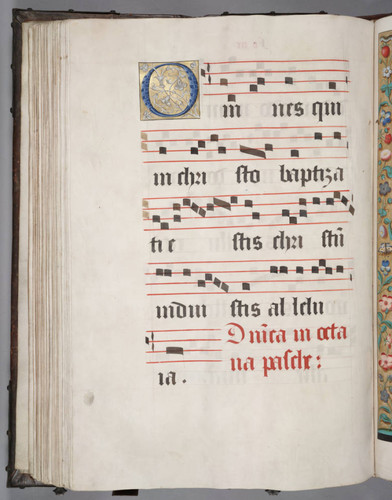 Om nes qui
in chri sto baptiza
ti e stis chri stū
indui stis al lelu
ia. Dn̄ica in octa
ua pasche: